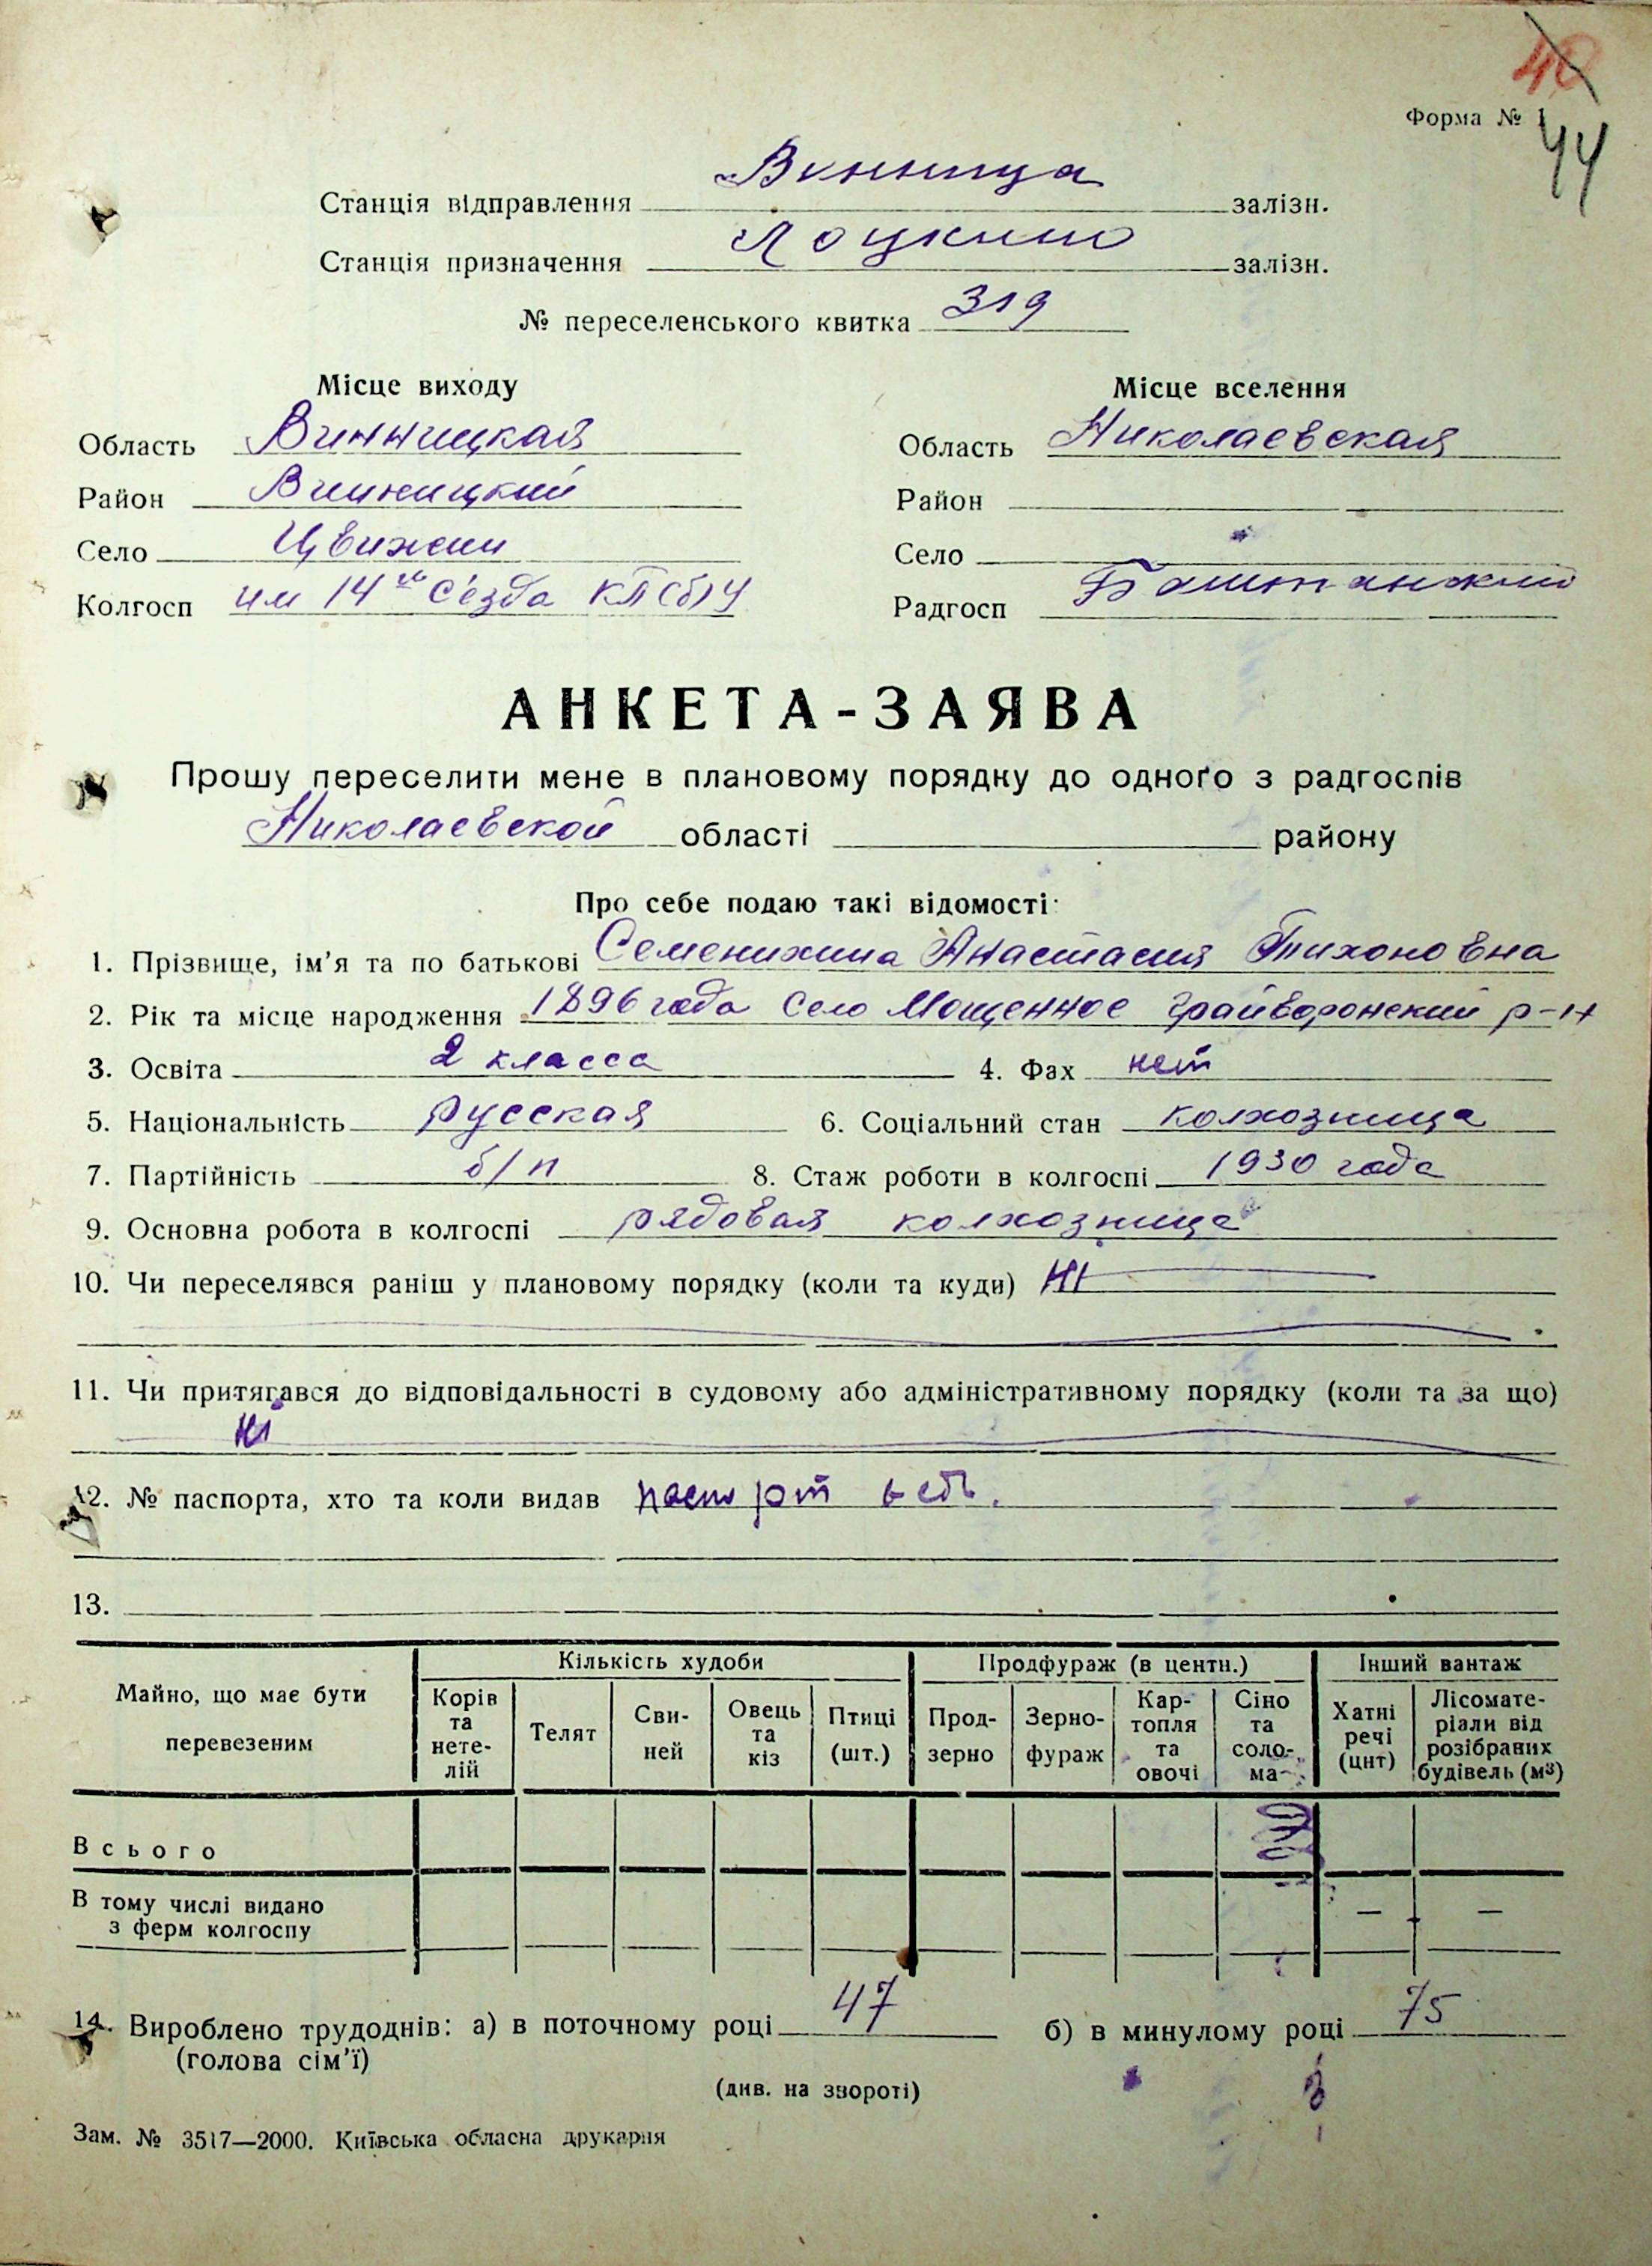 40
Форма № 1
44
Станція відправлення Винница залізн.
Станція призначення Лоцкино залізн.
№ переселенського квитка 319
Місце виходу Місце вселення
Область Винницкая Область Николаевская
Район Винницкий Район
Село Цвижин Село
Колгосп им 14го Сезда КП(б)У Радгосп Баштанский
АНКЕТА-ЗАЯВА
Прошу переселити мене в плановому порядку до одного з радгоспів
Николаевской області району
Про себе подаю такі відомості:
1. Прізвище, ім'я та по батькові Семенихина Анастасия Тихоновна
2. Рік та місце народження 1896 года село Мощенное Грайворонский р-н
3. Освіта 2 класса 4. Фах нет
5. Національність русская 6. Соціальний стан колхозница
7. Партійність б/п 8. Стаж роботи в колгоспі 1930 года
9. Основна робота в колгоспі рядовая колхозница
10. Чи переселявся раніш у плановому порядку (коли та куди) Ні
11. Чи притягався до відповідальності в судовому або адміністративному порядку (коли та за що)
Ні
12. № паспорта, хто та коли видав паспорт
13.
Майно, що має бути перевезеним Кількість худоби Продфураж (в центн.) Інший вантаж
Корів та нете-лій Телят Сви-ней Овець та кіз Птиці (шт.) Прод-зерно Зерно-фураж Кар-топля та овочі Сіно та соло-ма Хатні речі (цнт) Лісомате-ріали від розібраних будівель (м³)
Всього
В тому числі видано
з ферм колгоспу — —
14. Вироблено трудоднів: а) в поточному році 47 б) в минулому році 75
(голова сім'ї)
(див. на звороті)
Зам. № 3517—2000. Київська обласна друкарня